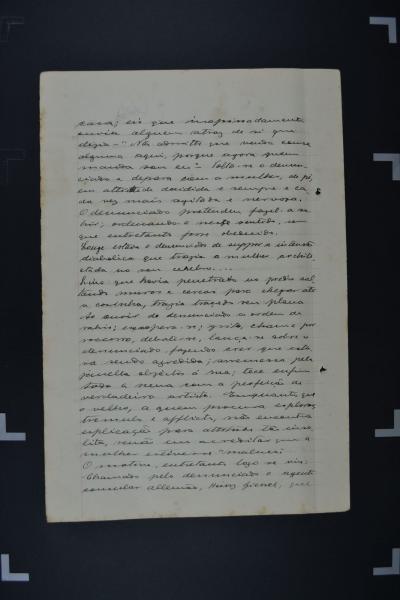 casa; eis que inopinadamente
ouviu alguem atraz de si que
dizia - "Não admitto que venda cousa
alguma aqui, porque agora quem
manda sou eu". Volta-se o denun-
ciado e depara com a mulher, de pé,
em attitude decidida e sempre e ca-
da vez mais agitada e nervosa.
O denunciado pretendeu fazel-a sa-
hir; ordenando-o neste sentido, sem
que entretanto fosse obedecido.
Longe estava o denunciado de suppor a intenção
diabolica que trazia a mulher archite-
ctada no seu cerebro....
que havia penetrado no predio sal-
tando muros e cercas para chegar até
a cosinha, trazia traçado seu plano
Ao ouvir do denunciado a ordem de
sahir; exaspera-se; grita, chama por
soccorro, debate-se, lança-se sobre o
denunciado fazendo crer que esta-
va sendo aggredida; arremessa pela
janella objectos á rua; tece emfim
toda a scena com a perfeição de
verdadeiro artista. Emquanto que
o velho, a quem procura explorar
tremulo e afflicto, não encontra
explicação para attitude tão inso-
lita, senão em acreditar que a
mulher estivesse "maluca".
O motivo, entretanto logo se viu:
Chamado pelo denunciado o agente
consular allemão, que